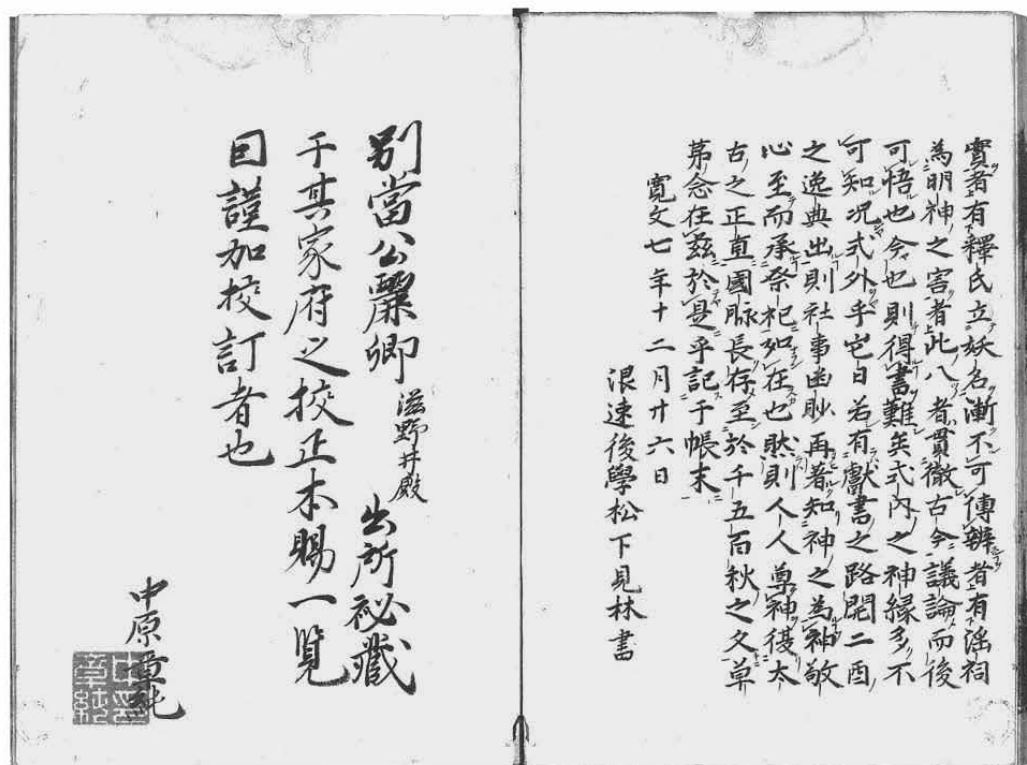 實者有釋氏立妖名漸不可傳辨者有淫祠
為明神之害者此八者貫徹古今議論而後
可悟也今也則得書難矣式内之神縁多不
可知况式外乎它日若有獻書之路開二酉
之逸典出則社事幽眇再著知神之為神敬
心至而承祭祀如在也然則人人尊神復太
古之正直國脉長存至於千五百秋之久草
茅念在茲於是乎記于帳末
寛文七年十二月廿六日
浪速後學松下見林書
別當公麗卿 滋野井殿 出所祕藏
于其家府之挍正本賜一覧
因謹加挍訂者也
中原章純